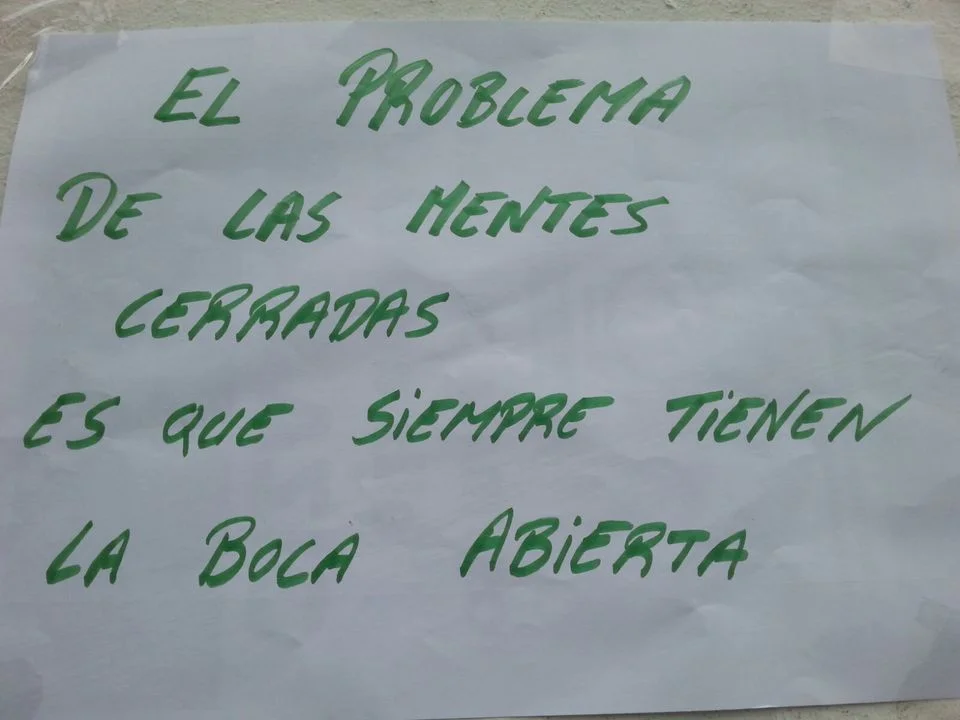 EL PROBLEMA
DE LAS MENTES
CERRADAS
ES QUE SiEMPRE TiENEN
LA BOCA ABiERTA